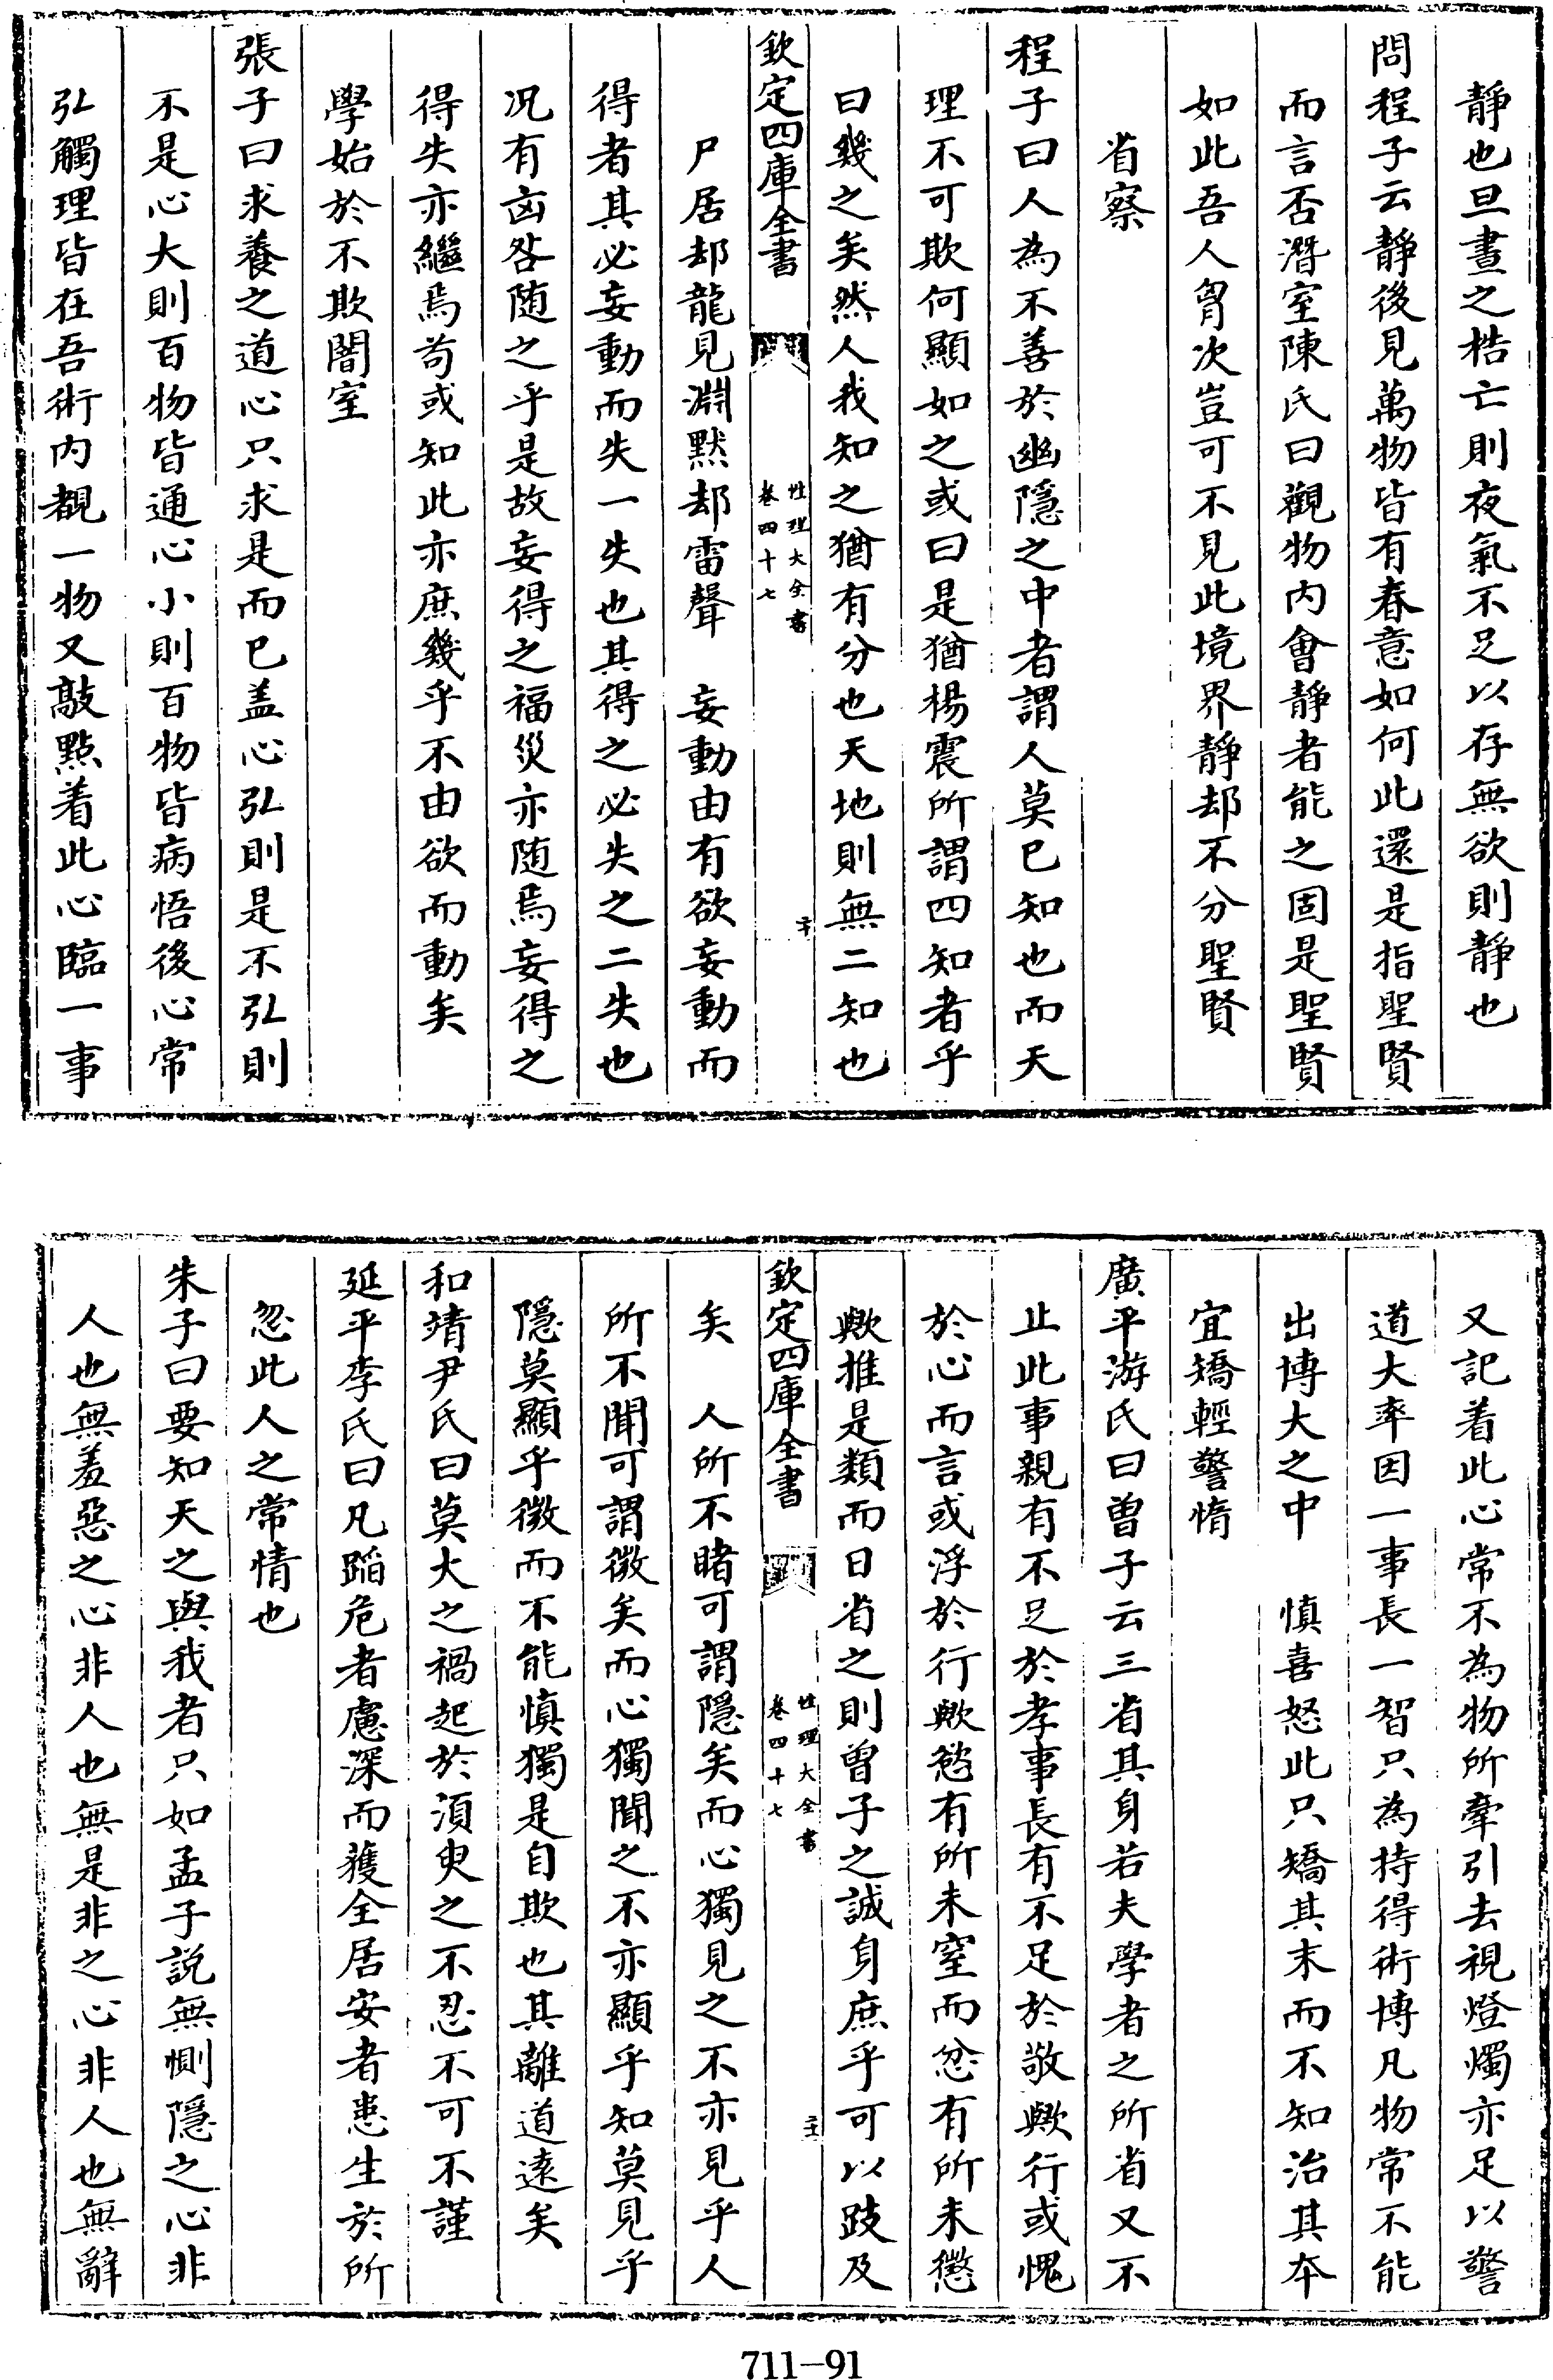 靜也旦晝之梏亡則夜氣不足以存無欲則靜也
問程子云靜後見萬物皆有春意如何此還是指聖賢
而言否潛室陳氏曰觀物内會靜者能之固是聖賢
如此吾人胷次豈可不見此境界靜却不分聖賢
省察
程子曰人為不善於幽隱之中者謂人莫已知也而天
理不可欺何顯如之或曰是猶楊震所謂四知者乎
曰幾之矣然人我知之猶有分也天地則無二知也
欽定四庫全書
性理大全書
卷四十七
二十
尸居却龍見淵黙却雷聲　妄動由有欲妄動而
得者其必妄動而失一失也其得之必失之二失也
况有凶咎随之乎是故妄得之福災亦随焉妄得之
得失亦繼焉苟或知此亦庶幾乎不由欲而動矣
學始於不欺闇室
張子曰求養之道心只求是而已盖心弘則是不弘則
不是心大則百物皆通心小則百物皆病悟後心常
弘觸理皆在吾術内覩一物又敲點着此心臨一事
又記着此心常不為物所牽引去視燈燭亦足以警
道大率因一事長一智只為持得術博凡物常不能
出博大之中　慎喜怒此只矯其末而不知治其本
宜矯輕警惰
廣平游氏曰曽子云三省其身若夫學者之所省又不
止此事親有不足於孝事長有不足於敬歟行或愧
於心而言或浮於行歟慾有所未窒而忿有所未懲
歟推是類而日省之則曽子之誠身庶乎可以跂及
欽定四庫全書
性理大全書
卷四十七
二十一
矣　人所不睹可謂隱矣而心獨見之不亦見乎人
所不聞可謂微矣而心獨聞之不亦顯乎知莫見乎
隱莫顯乎微而不能慎獨是自欺也其離道遠矣
和靖尹氏曰莫大之禍起於湏臾之不忍不可不謹
延平李氏曰凡蹈危者慮深而獲全居安者患生於所
忽此人之常情也
朱子曰要知天之與我者只如孟子説無惻隱之心非
人也無羞惡之心非人也無是非之心非人也無辭
711-91